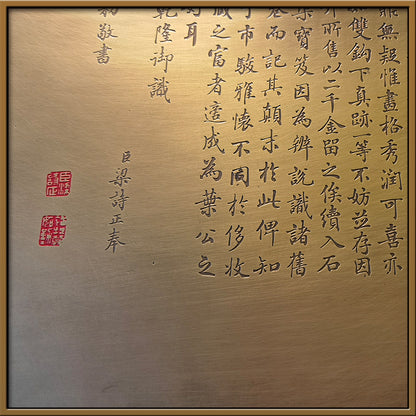 無疑惟畫格秀潤可喜亦
雙鉤下真跡一等不妨並存因
所售以二千金留之俟續入石
寶笈因為辨說識諸舊
卷而記其顛末於此俾知
市駿雅懷不同於侈收
藏之富者適成為葉公之
耳
乾隆御識
臣梁詩正奉
勅敬書